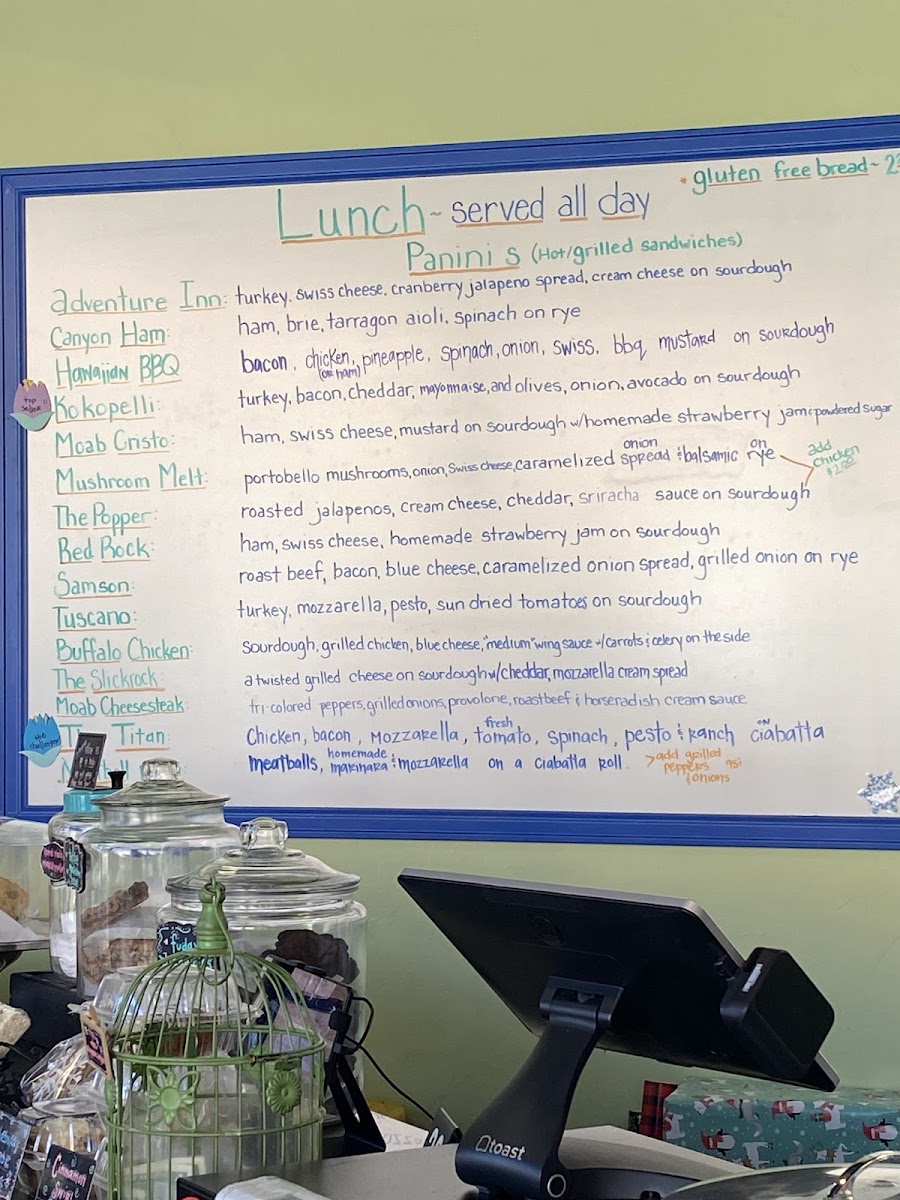 * gluten free bread ~
Lunch ~ served all day
Paninis (Hot/grilled sandwiches)
adventure Inn: turkey, swiss cheese, cranberry jalapeno spread, cream cheese on sourdough
Canyon Ham: ham, brie, tarragon aioli, spinach on rye
Hawaiian BBQ bacon, chicken, pineapple, spinach, onion, swiss, bbq mustard on sourdough
(or ham)
top seller
Kokopelli: turkey, bacon, cheddar, mayonnaise, and olives, onion, avocado on sourdough
Moab Cristo: ham, swiss cheese, mustard on sourdough w/homemade strawberry jam & powdered sugar
Mushroom Melt: portobello mushrooms, onion, swiss cheese, caramelized onion spread & balsamic on rye
add chicken $2.00
The Popper: roasted jalapenos, cream cheese, cheddar, sriracha sauce on sourdough
Red Rock: ham, swiss cheese, homemade strawberry jam on sourdough
Samson: roast beef, bacon, blue cheese, caramelized onion spread, grilled onion on rye
Tuscano: turkey, mozzarella, pesto, sun dried tomatoes on sourdough
Buffalo Chicken: sourdough, grilled chicken, blue cheese, "medium" wing sauce w/carrots & celery on the side
The Slickrock: a twisted grilled cheese on sourdough w/cheddar, mozzarella cream spread
Moab Cheesesteak: tri-colored peppers, grilled onions, provolone, roast beef & horseradish cream sauce
the challenger
Titan: Chicken, bacon, mozzarella, fresh tomato, spinach, pesto & ranch on ciabatta
meatballs, homemade marinara & mozzarella on a ciabatta roll.
>add grilled peppers & onions
fudge
Cinnamon Swirl
toast